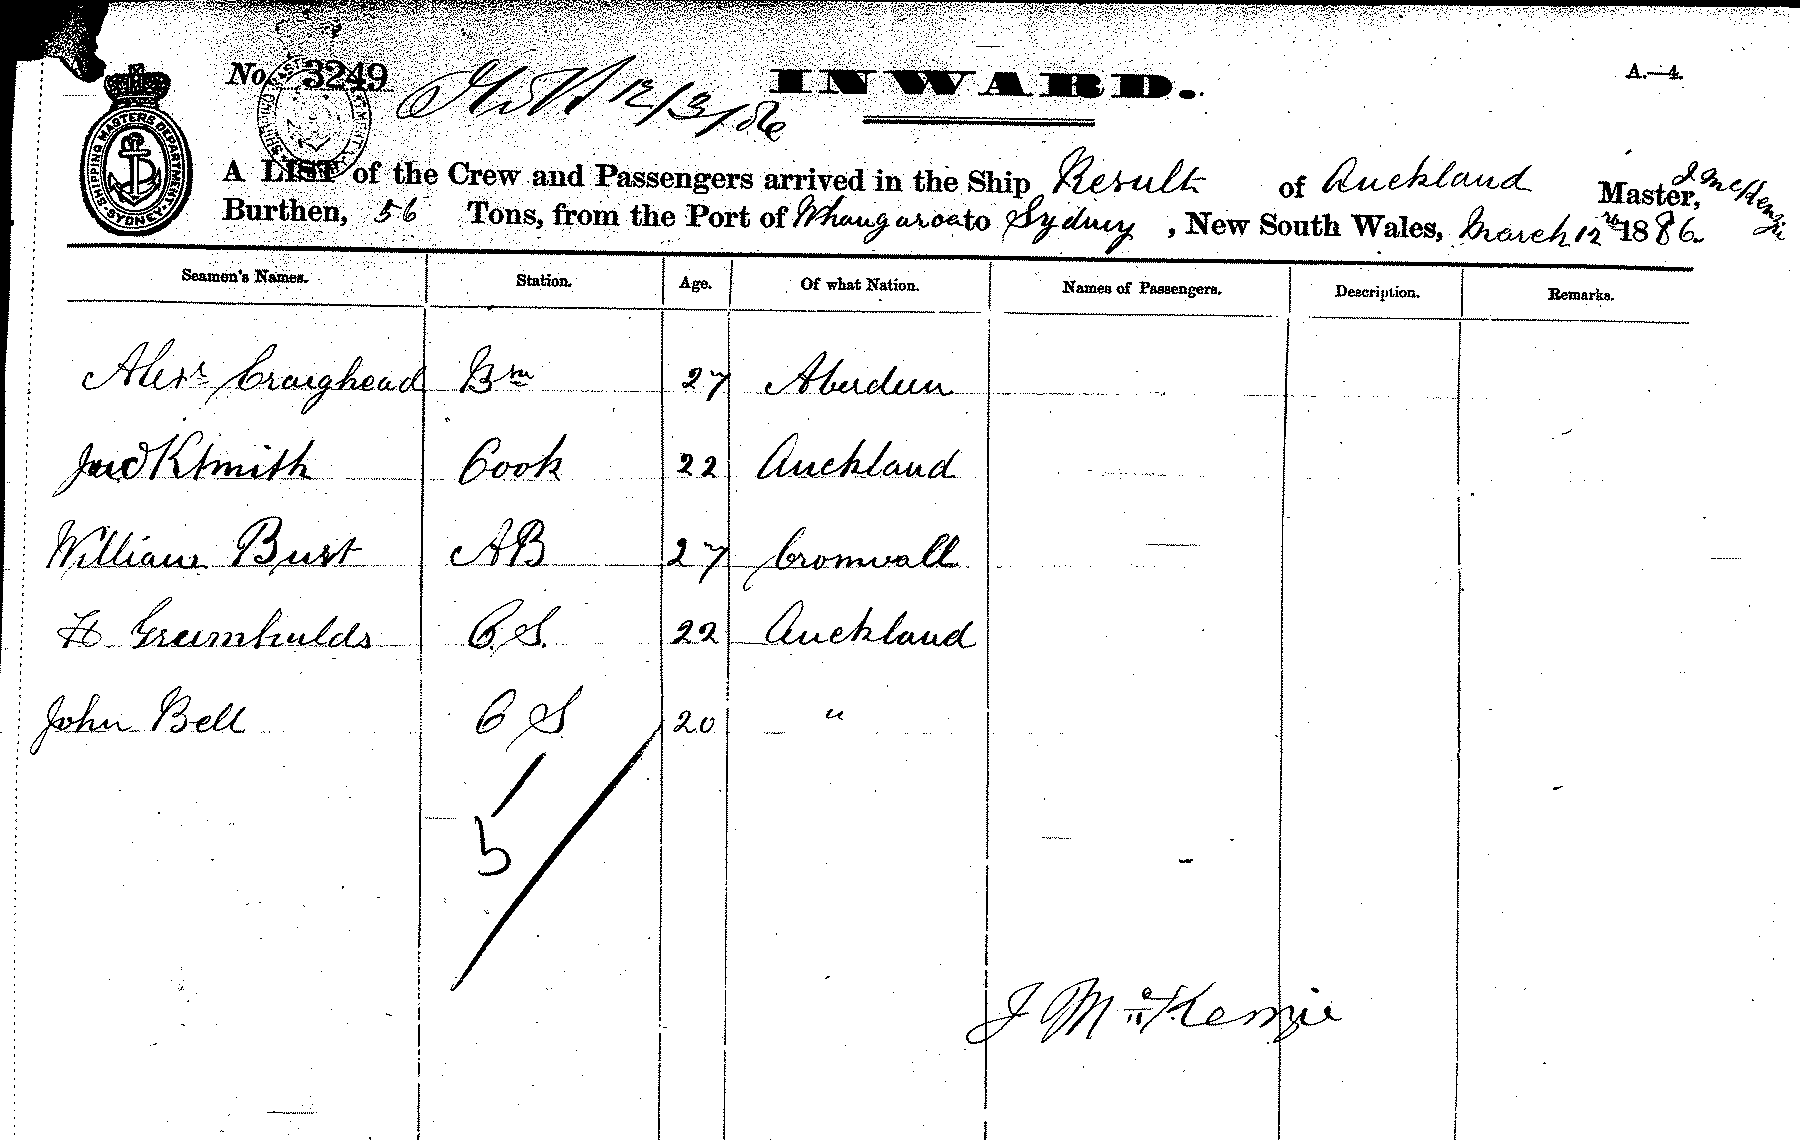 No 3249 12/3/86 INWARD. A.—4.
SHIPPING MASTERS DEPARTMENT SYDNEY
A LIST of the Crew and Passengers arrived in the Ship Result of Auckland Master, J McKenzie
Burthen, 56 Tons, from the Port of Whangaroa to Sydney, New South Wales, March 12 1886.
Seamen's Names. Station. Age. Of what Nation. Names of Passengers. Description. Remarks.
Alexr Craighead Bm 27 Aberdeen
Smith Cook 22 Auckland
William Burt AB 27 Cromwall
O.S. 22 Auckland
John Bell O S 20 "
5
J McKenzie